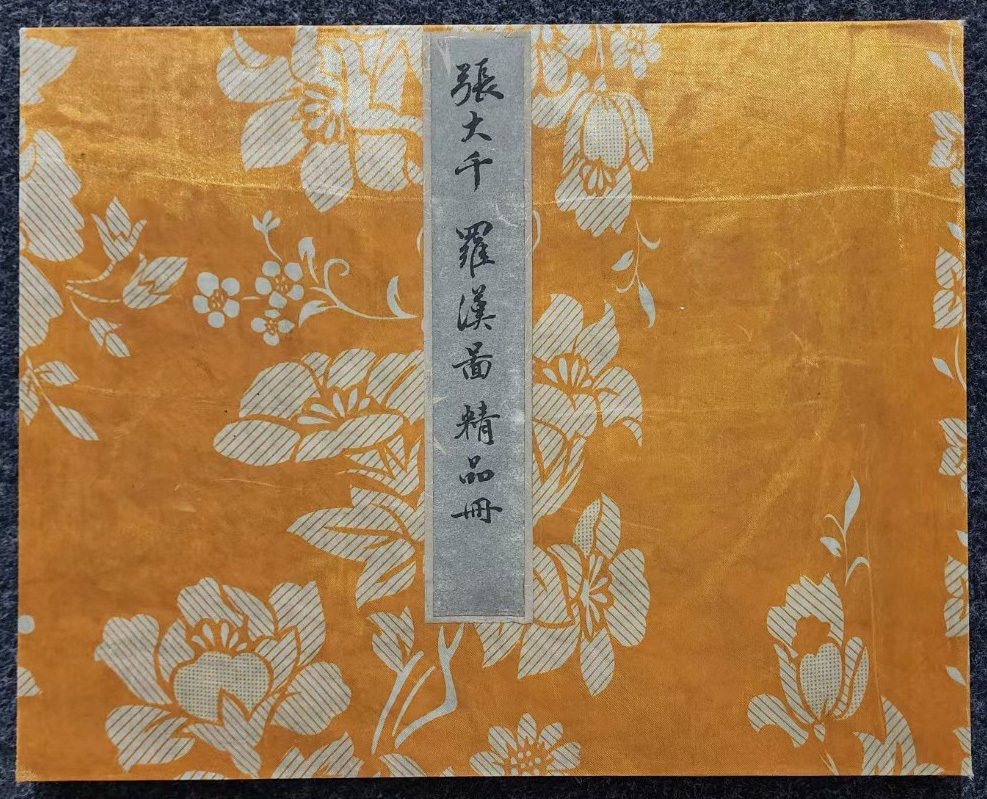 張大千 羅漢圖 精品冊